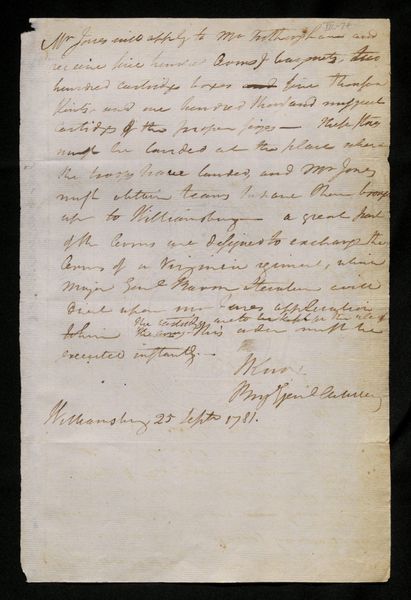 Mr Jones will apply to Mr Fotheringham and
receive five hundred Arms & bayonets,
hundred cartridge boxes and five thousand
flints, and one hundred thousand musquet
cartridges of the proper sizes — these stores
must be landed at the place where
the troops have landed, and Mr Jones
must obtain teams to have them brought
up to Williamsburg — a great part
of the Arms are designed to exchange the
Arms of a Virginia regiment, which
Major Genl Baron Steuben will
upon Mr Jones application
to him The cartridges are to be kept for the use of
the army. This order must be
executed instantly. —
HKnox
Brig Genl Artillery
Williamsburg 25 Septr 1781.